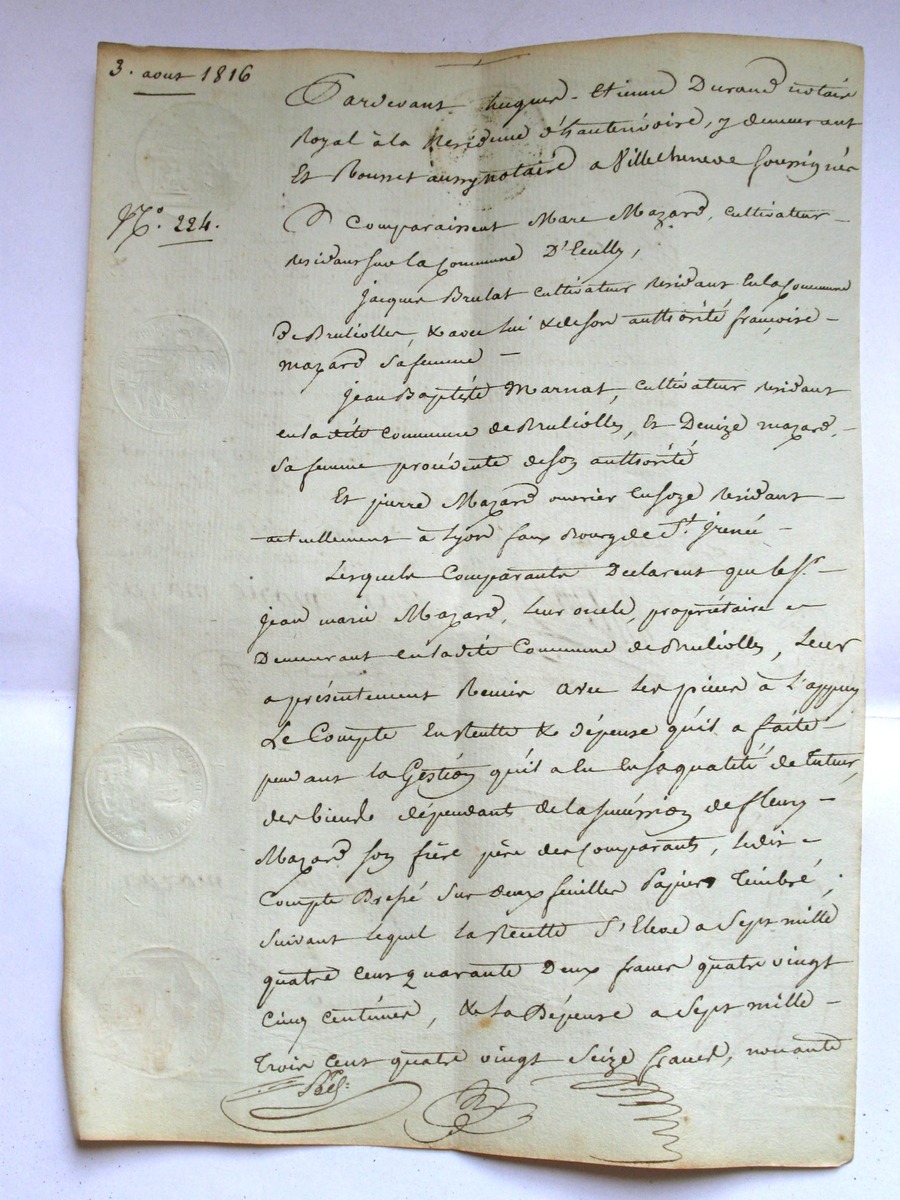 3. aout 1816
Pardevant hugue-Etienne Durand notaire
Royal à la Residence d'hauterivoire, y demeurant
Et Rousset aussy notaire a Villecheneve Soussignés
N.° 224.
Comparaissent Marc Mazard, cultivateur
residant sur la Commune D'Ecully,
jacques Brulat cultivateur residant en la Commune
de Brulioles, & avec lui & de son authorité françoise
mazard sa femme
jean Baptiste Marnat, cultivateur residant
en ladite Commune de Brulioles, Et Denize mazard,
sa femme procédente de son authorité
Et pierre Mazard ouvrier en soye residant
actuellement à Lyon faux Bourg de St. jrenée
Lesquels Comparants Declarent que le Sr.
jean marie Mazard, leur oncle, propriétaire
Demeurant en ladite Commune de Brulioles, Leur
a présentement Remis avec Les pieces à L'appuy
Le Compte En Recette & dépense qu'il a faite
pendant la Gestion qu'il a Eu En sa qualité de tuteur,
des biens dépendants de la succession de fleury
Mazard son frère père des comparants, ledit
Compte Dressé sur Deux feuilles Papier Timbré,
suivant lequel la Recette S'Eleve a Sept mille
quatre cent quarante Deux francs quatre vingt
Cinq centimes, & la Dépense a Sept mille
trois cent quatre vingt Seize francs, nonante